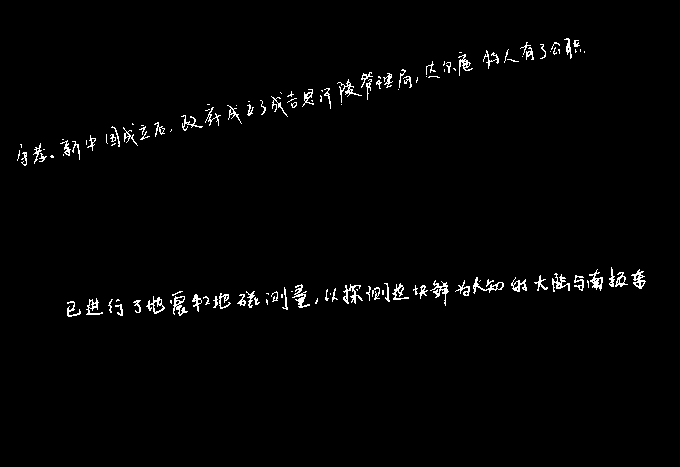 守孝。新中国成立后，政府成立了成吉思汗陵管理局，达尔扈特人有了公职
已进行了地震和地磁测量，以探测这块鲜为人知的大陆与南极东